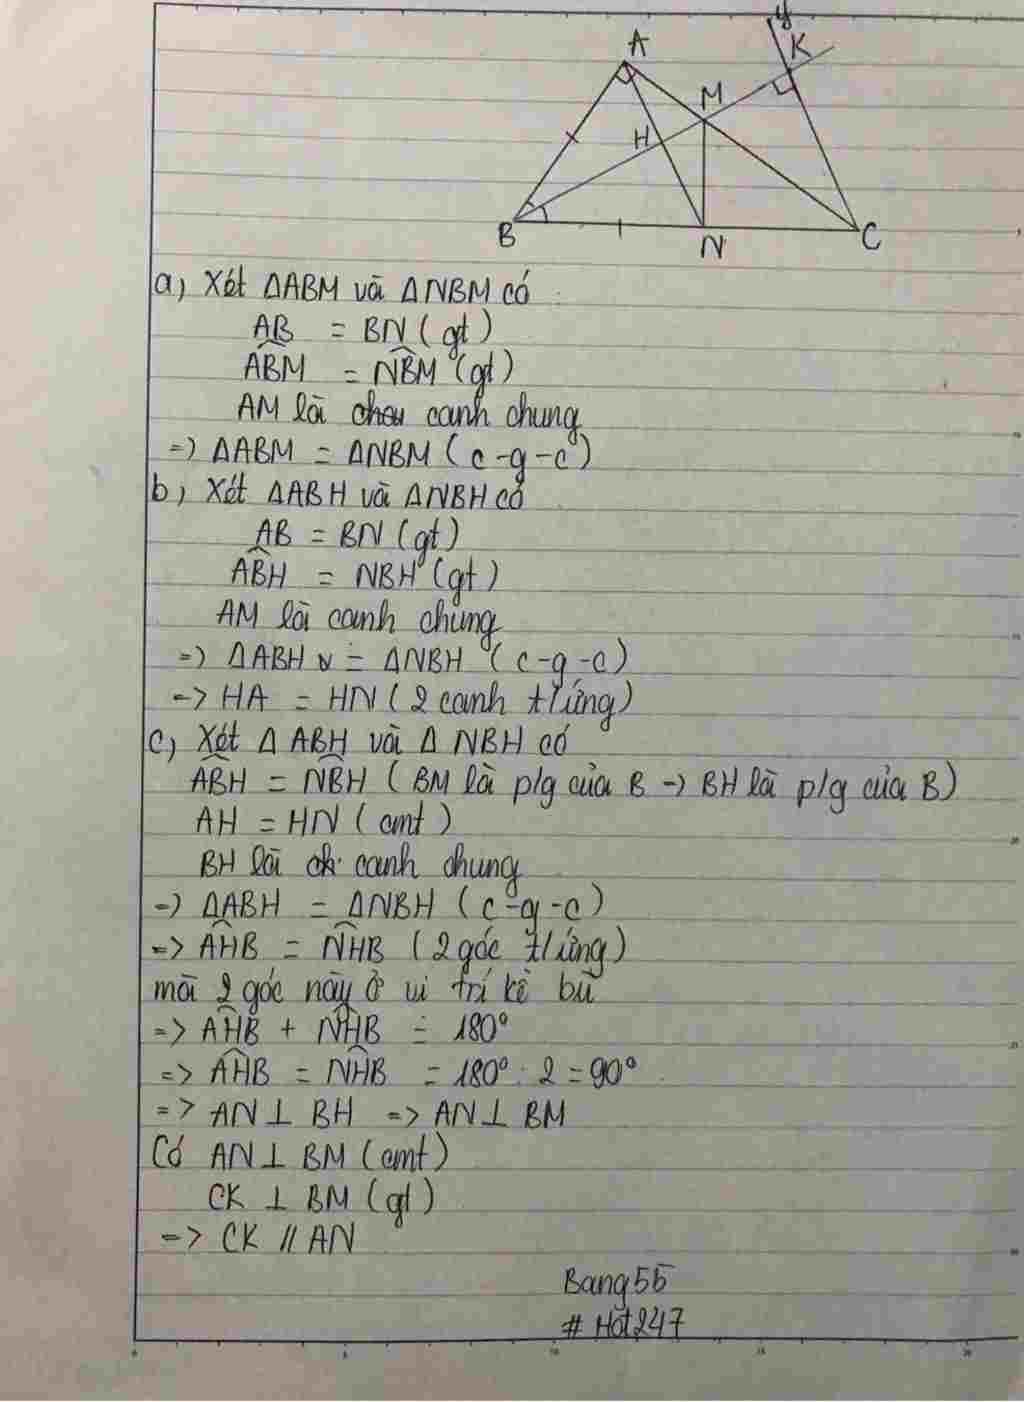 y
A
K
M
H
B
N
C
a) Xét ΔABM và ΔNBM có
AB = BN (gt)
ABM̂ = NBM̂ (gt)
AM là cạnh chung
=> ΔABM = ΔNBM (c-g-c)
b) Xét ΔABH và ΔNBH có
AB = BN (gt)
ABĤ = NBH (gt)
AM là cạnh chung
=> ΔABH = ΔNBH (c-g-c)
=> HA = HN (2 cạnh t/ứng)
c) Xét Δ ABH và Δ NBH có
ABĤ = NBĤ ( BM là p/g của B -> BH là p/g của B)
AH = HN (cmt)
BH là cạnh chung
=> ΔABH = ΔNBH (c-g-c)
=> AHB̂ = NHB̂ (2 góc t/ứng)
mà 2 góc này ở vị trí kề bù
=> AHB̂ + NHB̂ = 180°
=> AHB̂ = NHB̂ = 180° : 2 = 90°
=> AN ⊥ BH => AN ⊥ BM
Có AN ⊥ BM (cmt)
CK ⊥ BM (gt)
=> CK // AN
Bang55
# Hot247